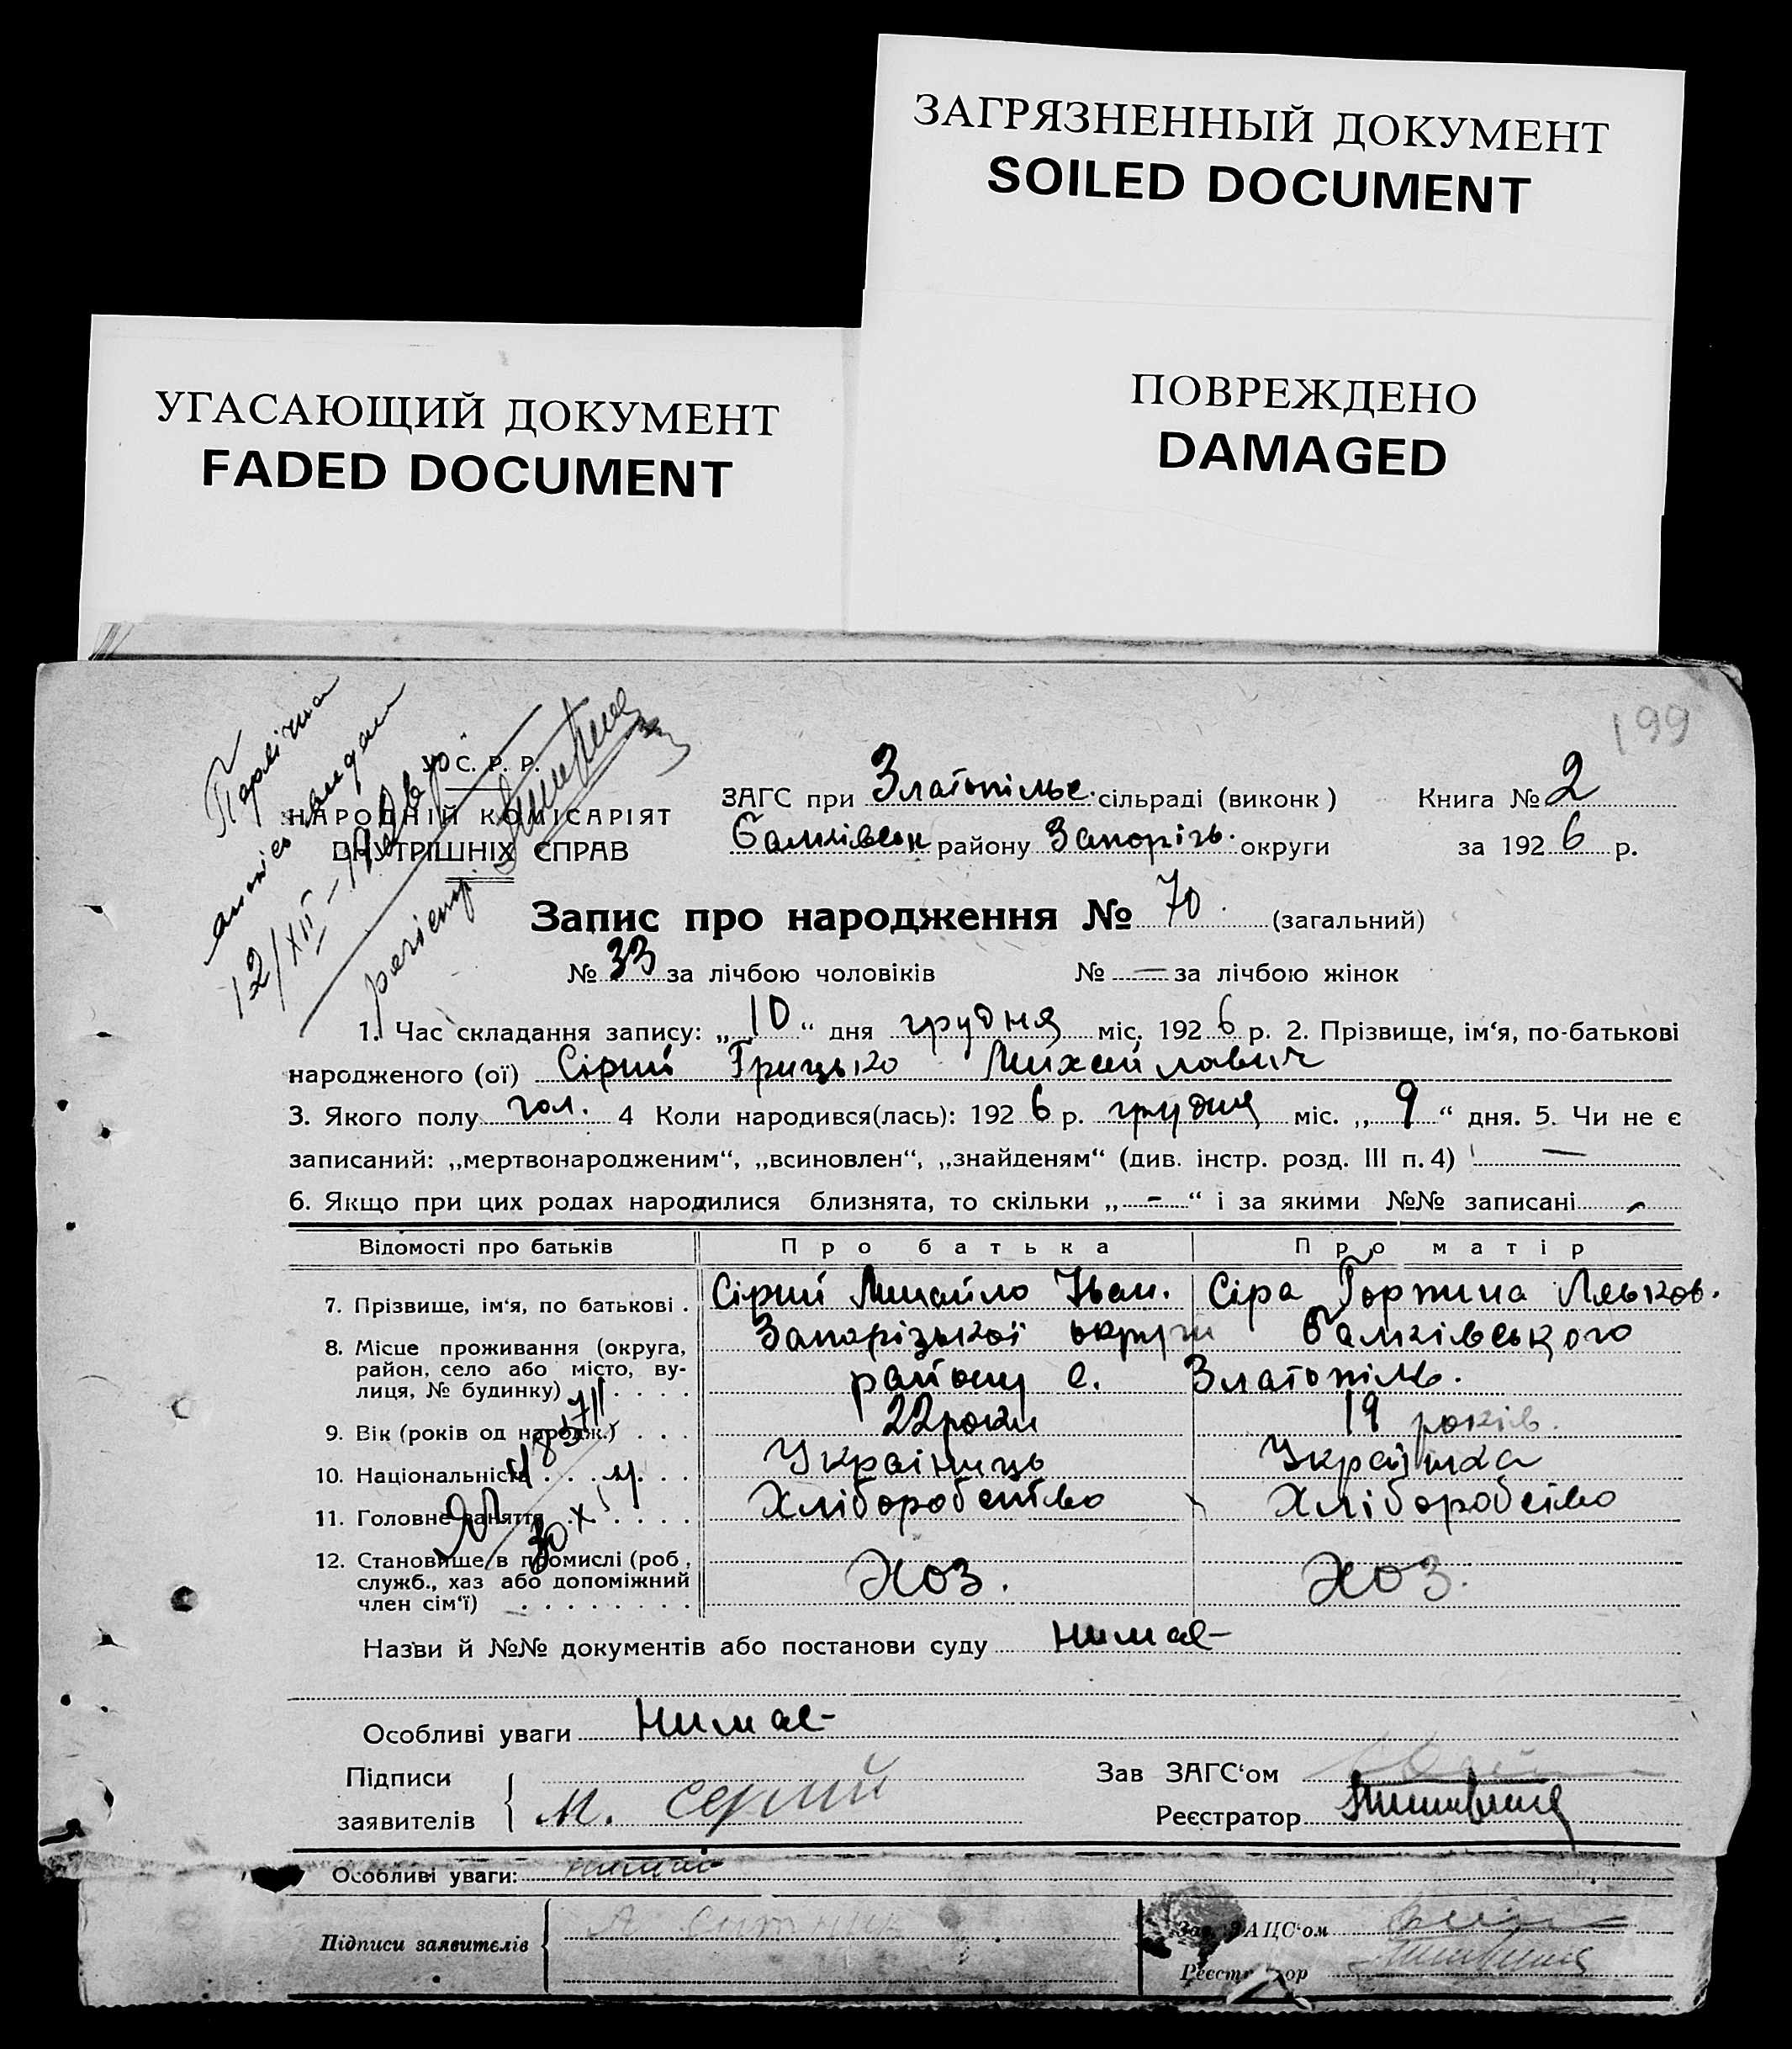 ЗАГРЯЗНЕННЫЙ ДОКУМЕНТ
SOILED DOCUMENT
ПОВРЕЖДЕНО
DAMAGED
УГАСАЮЩИЙ ДОКУМЕНТ
FADED DOCUMENT
199
У. С. Р. Р.
НАРОДНІЙ КОМІСАРІЯТ
ВНУТРІШНІХ СПРАВ
12/XII-
ЗАГС при Златопільс. сільраді (виконк) Книга № 2
району Запорізь. округи за 1926 р.
Запис про народження № 70. (загальний)
№ 33 за лічбою чоловіків № — за лічбою жінок
1. Час складання запису: „10“ дня грудня міс. 1926 р. 2. Прізвище, ім‘я, по-батькові
народженого (ої) Сірий Грицько Михайлович
3. Якого полу чол. 4 Коли народився(лась): 1926 р. грудня міс. „9“ дня. 5. Чи не є
записаний: „мертвонародженим“, „всиновлен“, „знайденям“ (див. інстр. розд. III п. 4) —
6. Якщо при цих родах народилися близнята, то скільки „-“ і за якими №№ записані -
Відомості про батьків Про батька Про матір
7. Прізвище, ім‘я, по батькові . Сірий Михайло Іван. Сіра Горпина
8. Місце проживання (округа, район, село або місто, вулиця, № будинку) . . . . Запорізької округи Балківського
району с. Златопіль.
9. Вік (років од народж.) . . . 22 роки 19 років.
10. Національність . . . . . Українець Українка
11. Головне заняття . . . . . Хліборобство Хліборобство
12. Становище в промислі (роб, служб., хаз або допоміжний член сім‘ї) . . . . . . . . Хоз. Хоз.
Назви й №№ документів або постанови суду нимає
Особливі уваги Нимає
Підписи
заявителів М. Серий
Зав ЗАГС‘ом
Реєстратор
Особливі уваги: нимає
Підписи заявителів
Зав. ЗАЦС‘ом
Реєстратор